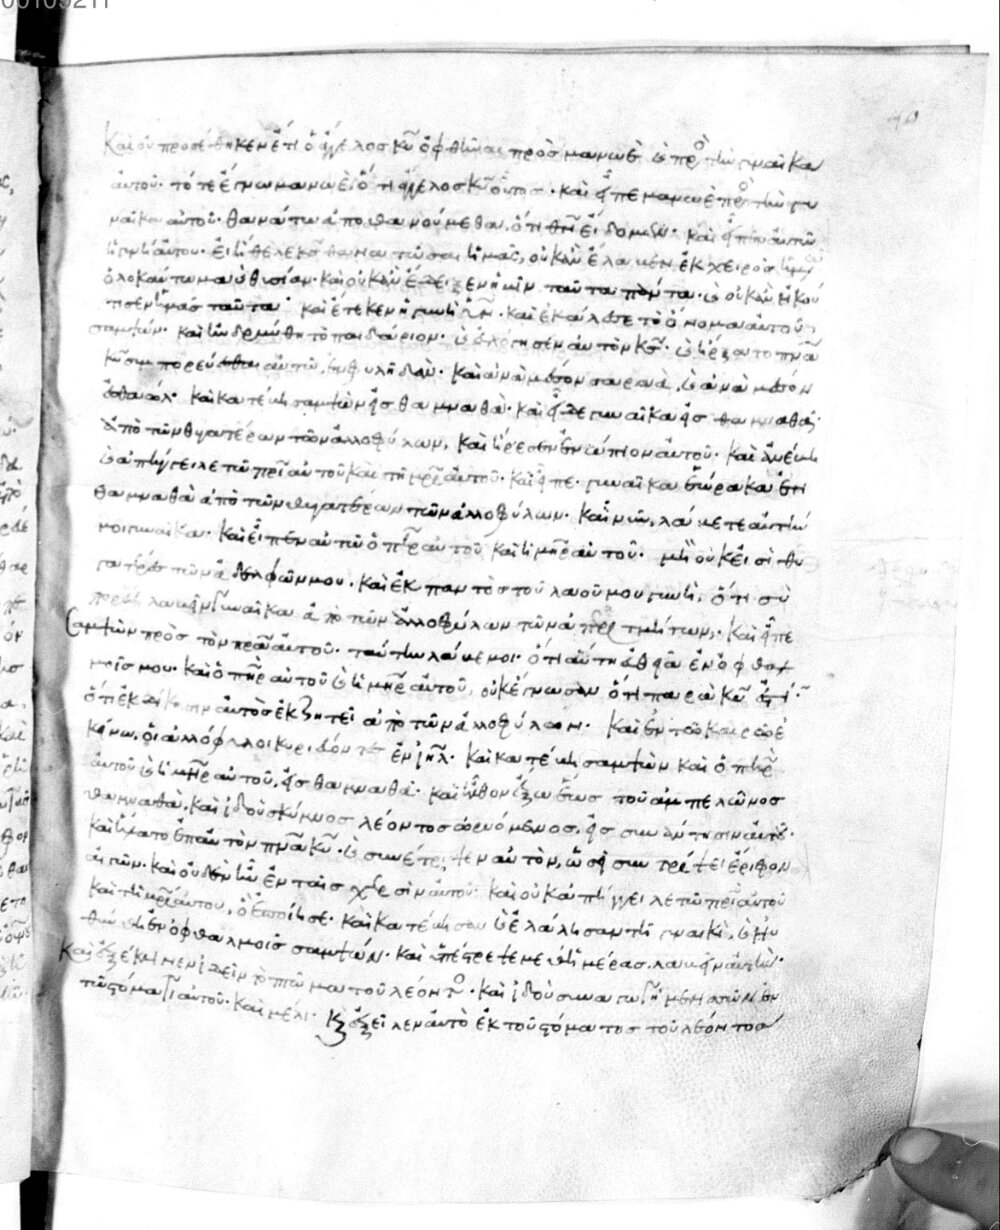 00109211
40
Καὶ οὐ προσέθηκεν ἔτι ὁ ἄγγελος κυ ὀφθῆναι πρὸς μανωὲ καὶ πρὸς τὴν γυναῖκα
αὐτοῦ· τότε ἔγνω μανωὲ ὅτι ἄγγελος κυ οὗτος· καὶ εἶπε μανωὲ πρὸς τὴν γυ
ναῖκα αὐτοῦ· θανάτω ἀποθανούμεθα, ὅτι θν εἴδομεν· καὶ εἶπεν αὐτῶ
ἡ γυνὴ αὐτοῦ· εἰ ἤθελε κς θανατῶσαι ἡμᾶς, οὐκ ἂν ἔλαβεν ἐκ χειρὸς ἡμῶν
ὁλοκαύτωμα καὶ θυσίαν· καὶ οὐκ ἂν ἔδειξεν ἡμῖν ταῦτα πάντα· καὶ οὐκ ἂν ἠκού
τισεν ἡμᾶς ταῦτα· καὶ ἔτεκεν ἡ γυνὴ υν· καὶ ἐκάλεσε τὸ ὄνομα αὐτοῦ
σαμψών· καὶ ἡδρύνθη τὸ παιδάριον· καὶ εὐλόγησεν αὐτὸν κς· καὶ ἤρξατο πνα
κυ συμπορεύεσθαι αὐτῶ, ἐν παρεμβολῆ δάν· καὶ ἀνὰ μέσον σαραὰ, καὶ ἀνὰ μέσον
ἐσθαόλ· καὶ κατέβη σαμψὼν εἰς θαμναθὰ· καὶ εἶδε γυναῖκα εἰς θαμναθὰ·
ἀπὸ τῶν θυγατέρων τῶν ἀλλοφύλων, καὶ ἤρεσεν ἐνώπιον αὐτοῦ· καὶ ἀνέβη
καὶ ἀπήγγειλε τῶ πρι αὐτοῦ καὶ τῆ μρι αὐτοῦ· καὶ εἶπε· γυναῖκα ἑώρακα ἐν
θαμναθὰ ἀπὸ τῶν θυγατέρων τῶν ἀλλοφύλων· καὶ νῦν, λάβετε αὐτήν
μοι γυναῖκα· καὶ εἶπεν αὐτῶ ὁ πηρ αὐτοῦ καὶ ἡ μηρ αὐτοῦ· μὴ οὐκ εἰσὶ θυ
γατέρες τῶν ἀδελφῶν μου, καὶ ἐκ παντὸς τοῦ λαοῦ μου γυνὴ, ὅτι σὺ
πορεύη λαβεῖν γυναῖκα ἀπὸ τῶν ἀλλοφύλων τῶν ἀπεριτμήτων· καὶ εἶπε
Σαμψὼν πρὸς τὸν πρα αὐτοῦ· ταύτην λάβε μοι· ὅτι αὕτη εὐθεῖα ἐν ὀφθαλ
μοῖς μου· καὶ ὁ πηρ αὐτοῦ καὶ ἡ μηρ αὐτοῦ, οὐκ ἔγνωσαν ὅτι παρὰ κυ ἐστί·
ὅτι ἐκδίκησιν αὐτὸς ἐκζητεῖ ἀπὸ τῶν ἀλλοφύλων· καὶ ἐν τῶ καιρῶ ἐ
κείνω, οἱ ἀλλόφυλοι κυριεύοντες ἐν ιηλ· καὶ κατέβη σαμψὼν καὶ ὁ πηρ
αὐτοῦ καὶ ἡ μηρ αὐτοῦ, εἰς θαμναθὰ· καὶ ἦλθον ἕως τοῦ ἀμπελῶνος
θαμναθὰ, καὶ ἰδοὺ σκύμνος λέοντος ὠρυόμενος, εἰς συνάντησιν αὐτοῦ·
καὶ ἥλατο ἐπ' αὐτὸν πνα κυ· καὶ συνέτριψεν αὐτὸν, ὡσεὶ συντρίψει ἔριφον
αἰγῶν· καὶ οὐδὲν ἦν ἐν ταῖς χερσὶν αὐτοῦ· καὶ οὐκ ἀπήγγειλε τῶ πρι αὐτοῦ
καὶ τῆ μρι αὐτοῦ, ὃ ἐποίησε· καὶ κατέβησαν καὶ ἐλάλησαν τῆ γυναικὶ, καὶ ηὐ
θύνθη ἐν ὀφθαλμοῖς σαμψών· καὶ ἐπέστρεψε μεθ' ἡμέρας, λαβεῖν αὐτὴν·
καὶ ἐξέκλινεν ἰδεῖν τὸ πτῶμα τοῦ λέοντος· καὶ ἰδοὺ συναγωγὴ μελισσῶν ἐν
τῶ στόματι αὐτοῦ· καὶ μέλι· καὶ ἐξεῖλεν αὐτὸ ἐκ τοῦ στόματος τοῦ λέοντος